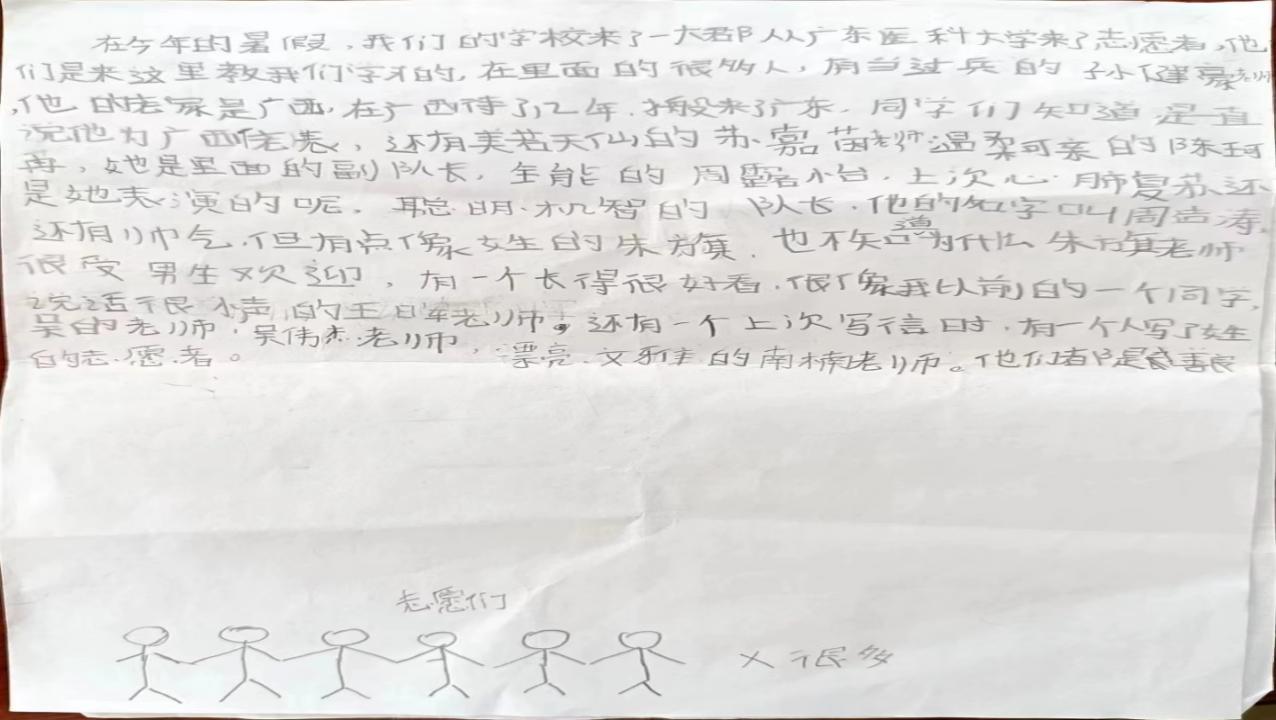 在今年的暑假，我们的学校来了一大群从广东医科大学来了志愿者，他
们是来这里教我们学才的，在里面的很多人，有当过兵的孙健豪老师
，他的老家是广西，在广西待了12年，搬来了广东，同学们知道是直
说他为广西佬表，还有美若天仙的苏嘉茵老师温柔可亲的陈珂
再，她是里面的副队长，全能的周露小台，上次心肺复苏还
是她表演的呢，聪明机智的队长，他的名字叫周吉涛，
还有帅气，但有点像女生的朱旗，也不知道为什么朱旗老师
很受男生欢迎，有一个长得很好看，很像我以前的一个同学，
说话很小声的王日年老师，还有一个上次写信时，有一个人写了女生
吴的老师，吴伟杰老师，漂亮文雅的南楠老师。他们都是良善良
的志愿者。
志愿们
× 很多